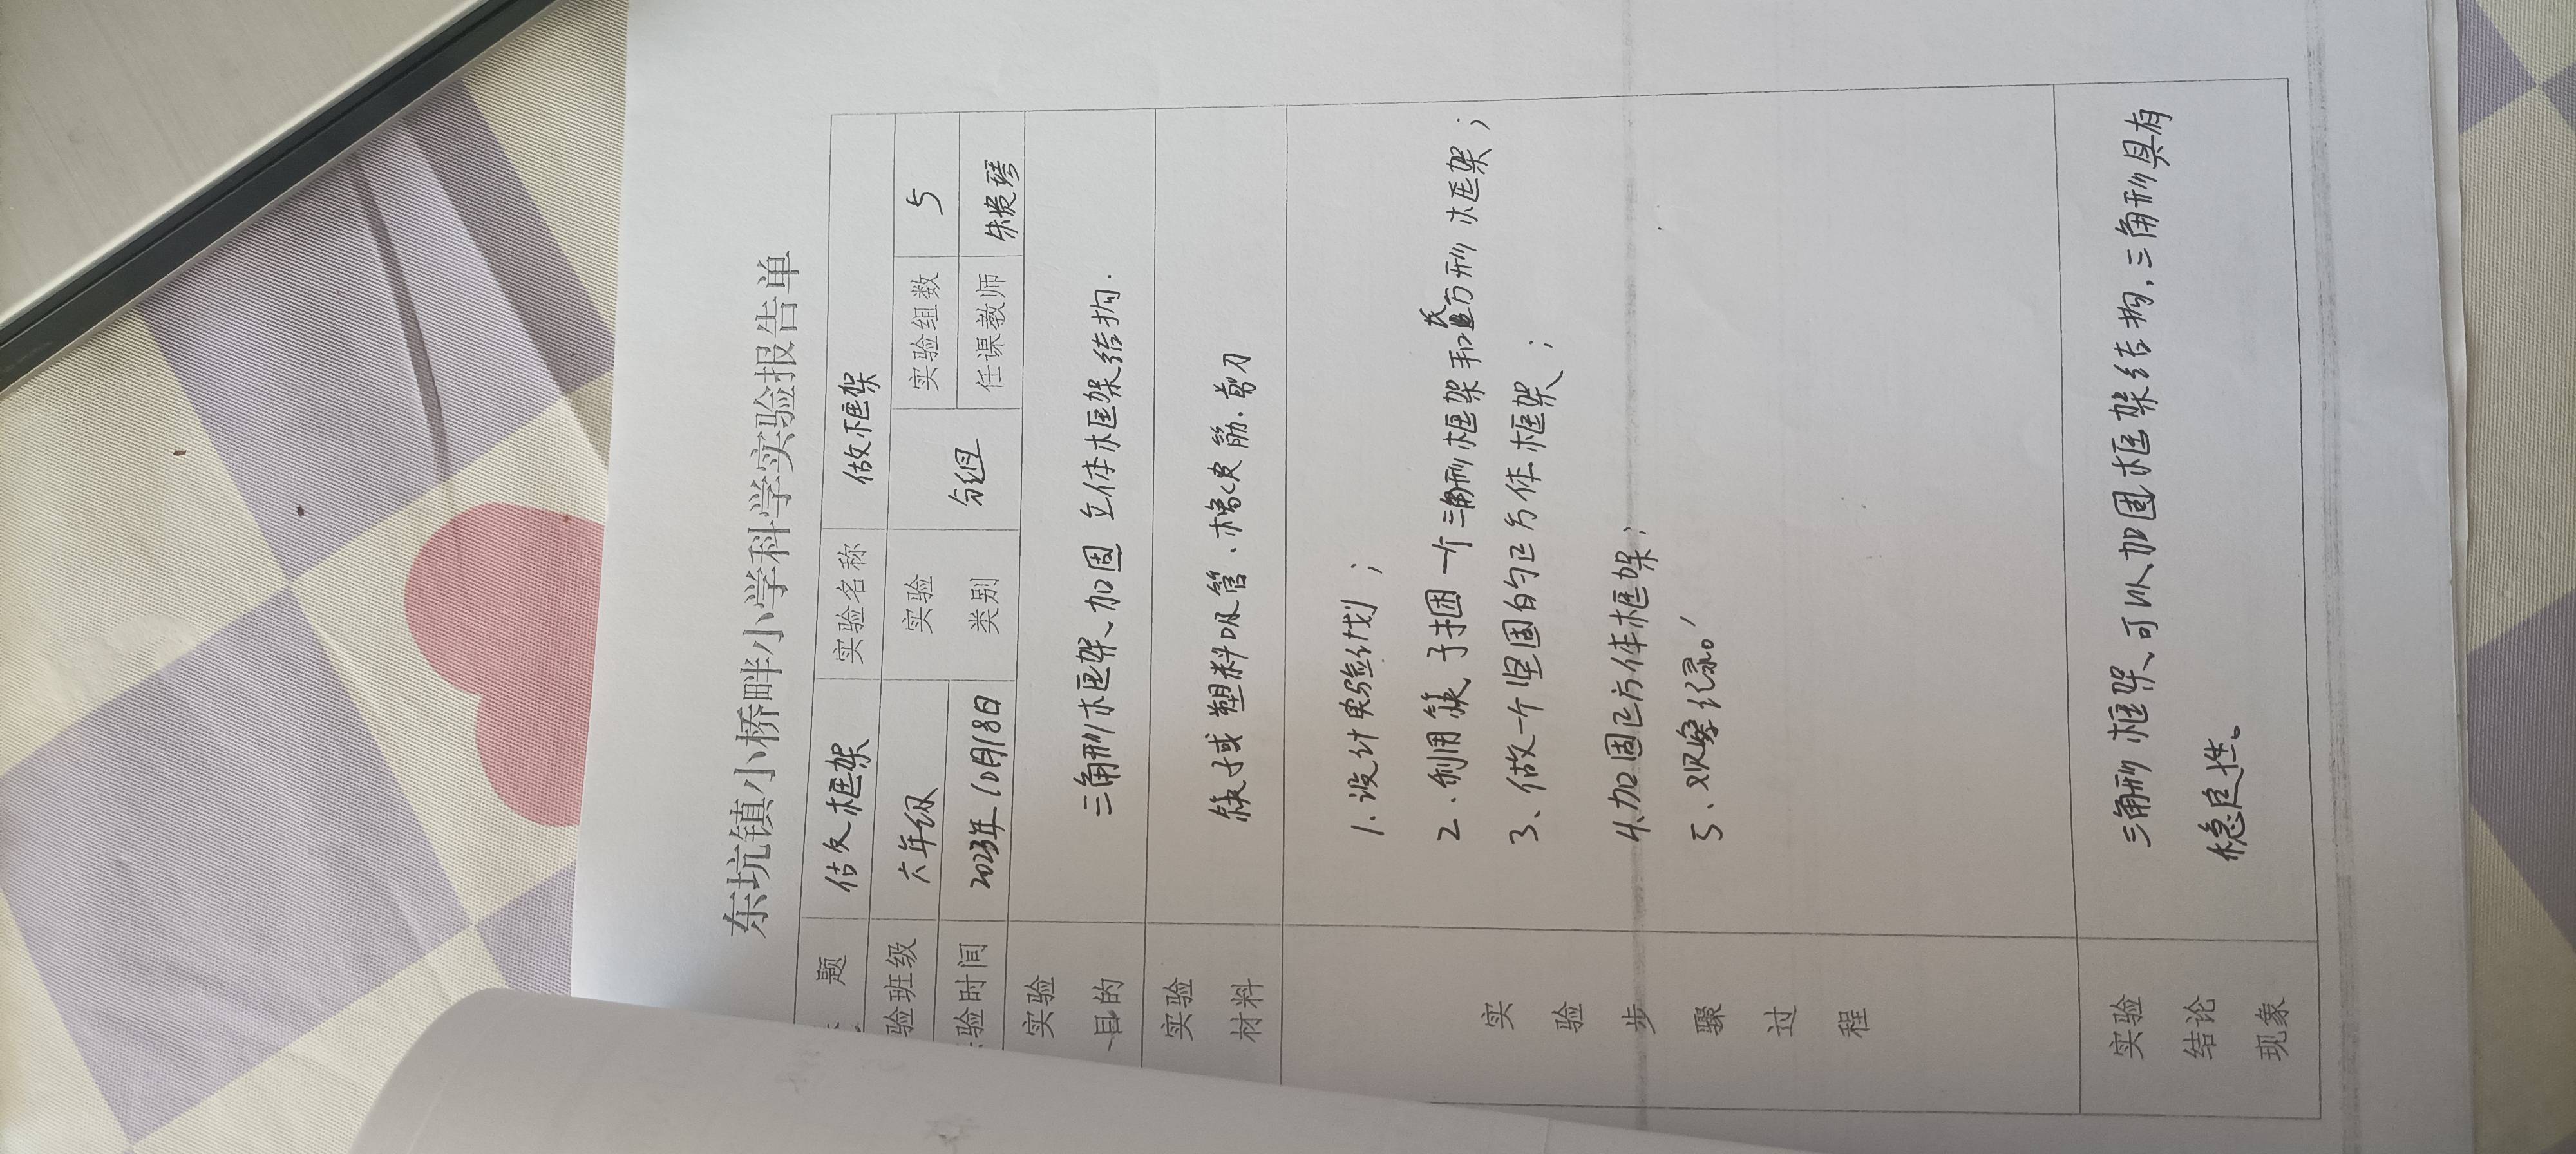 东坑镇小桥畔小学科学实验报告单
题 做框架 实验名称 做框架
验班级 六年级 实验类别 分组 实验组数 5
验时间 2023年10月18日 任课教师 朱贵琴
实验目的 三角形框架、加固立体框架结构.
实验材料 筷子或塑料吸管.橡皮筋.剪刀
实验步骤过程
1.设计实验计划;
2.利用筷子捆一个三角形框架和长方形框架;
3、做一个坚固的正方体框架;
4.加固正方体框架;
5、观察纪录。
实验结论现象
三角形框架、可以加固框架结构,三角形具有
稳定性。